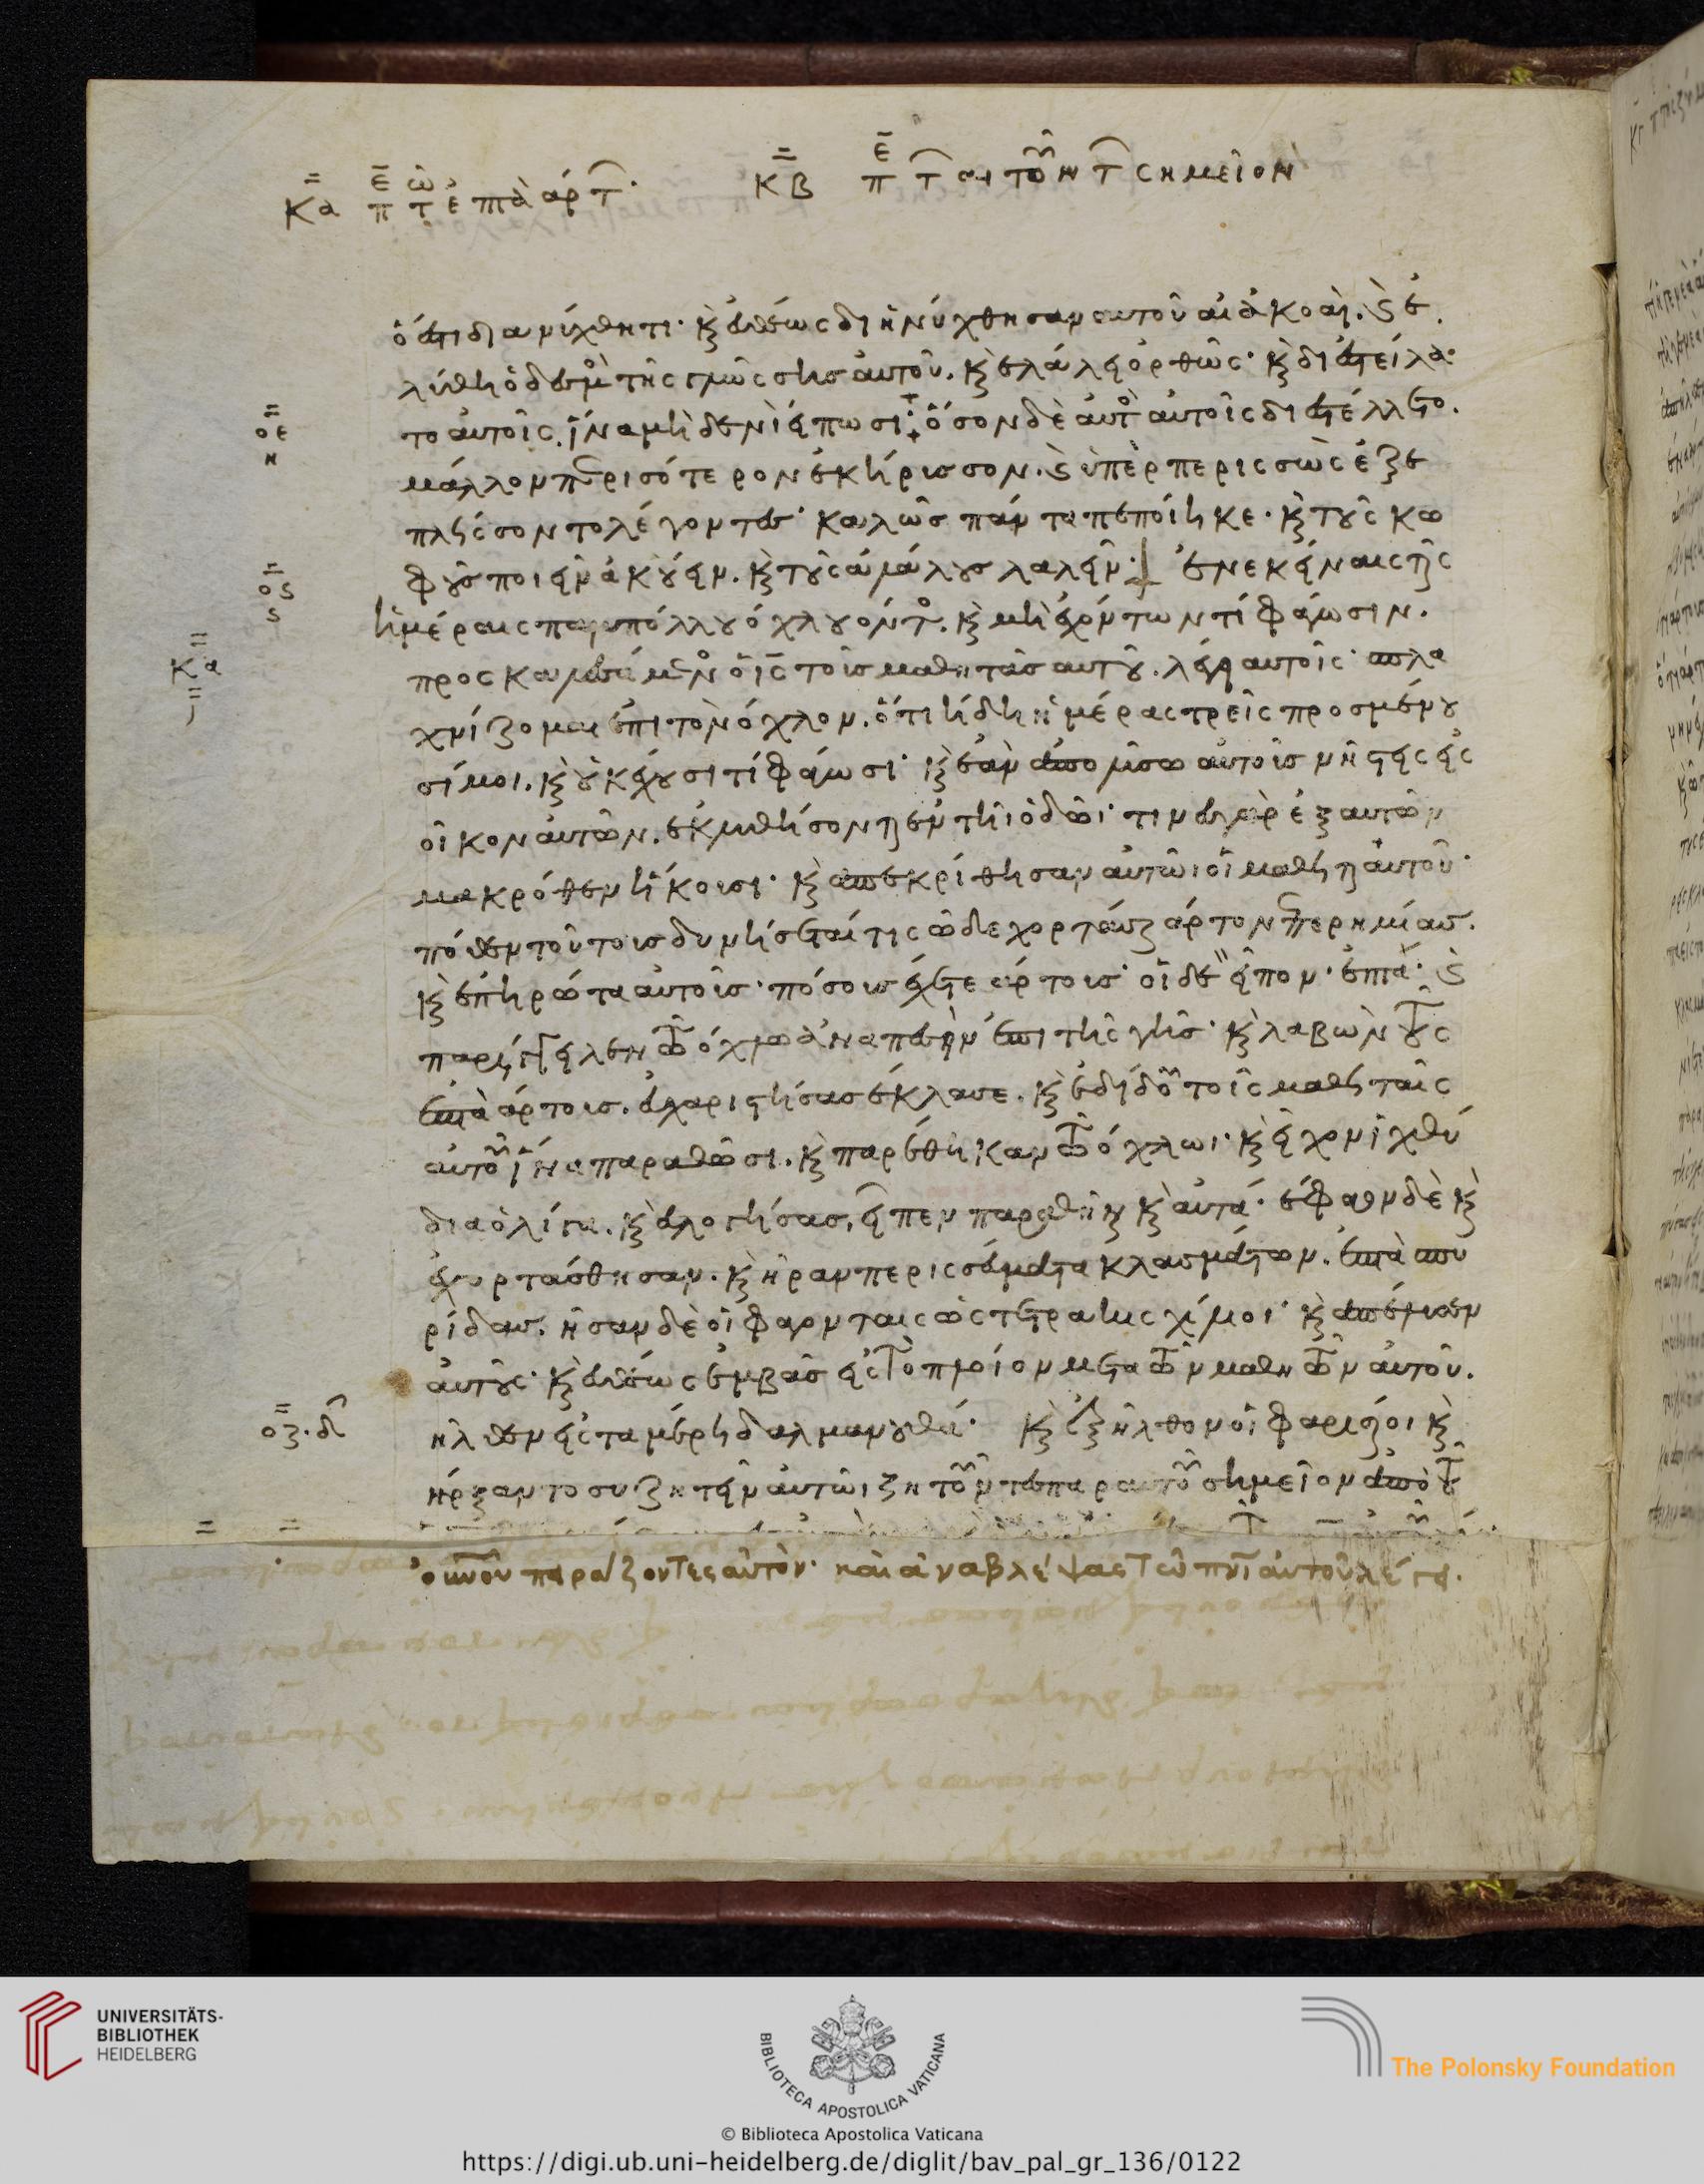 κα περὶ τῶν ἑπτὰ ἄρτ
κβ περὶ τ αιτούντ σημεῖον
ὅ ἐστι διανύχθητι· κ εὐθέως διηνύχθησαν αυτοῦ αἱ ἀκοαί. κ ἐ
λύθη ὁ δεσμὸς τῆς γλώσσης αὐτοῦ. κ ελάλει ὀρθῶς· κ διεστείλα
το αυτοῖς. ἵνα μηδενὶ είπωσι· ὅσον δὲ αὐτὸς αὐτοῖς διεστέλλετο.
μάλλον περισότερον ἐκήρισσον. κ ὑπερπερισσὼς ἐξε
πλήσοντο λέγοντες· καλῶς πάντα πεποίηκε· κ τοὺς κω
οε
η
φοὺς ποιεῖν ἀκούειν. κ τοὺς ἀλάλους λαλεῖν· ἐν εκείναις ταῖς
ος
ς
ἡμέραις παμπόλλου όχλου όντος. κ μὴ εχόντων τί φάγωσιν.
κα
προσκαλεσάμενος ὁ ις τοὺς μαθητὰς αυτοῦ. λέγει αυτοῖς· σπλα
χνίζομαι ἐπὶ τὸν όχλον. ὅτι ήδη ἡμέρας τρεῖς προσμένου
σί μοι. κ οὐκ έχουσι τί φάγωσι· κ ἐὰν ἀπολύσω αυτοὺς νήστεις εἰς
οἶκον αυτῶν. εκλυθήσονται ἐν τῆι ὁδῶι· τινὲς γὰρ ἐξ αυτῶν
μακρόθεν ἥκουσι· κ απεκρίθησαν αυτῶι οἱ μαθηταὶ αὐτοῦ·
πόθεν τούτους δυνήσεταί τις ὧδε χορτάσαι άρτον επ ερημίας.
κ ἐπηρώτα αὐτοὺς· πόσους έχετε άρτους· οἱ δὲ εἶπον· ἑπτά· κ
παρήγγειλεν τῶ όχλω ἀναπεσεῖν ἐπὶ τῆς γῆς· κ λαβὼν τοὺς
ἑπτὰ άρτους. εὐχαριστήσας έκλασε. κ ἐδίδου τοῖς μαθηταῖς
αυτοῦ ἵνα παραθῶσι. κ παρέθηκαν τῶ όχλωι· κ εἶχον ἰχθύ
δια ὀλίγα. κ ευλογήσας, εἶπεν παραθεῖναι κ αυτά· έφαγον δὲ κ
ἐχορτάσθησαν. κ ῆραν περισσεύματα κλασμάτων. ἑπτὰ σπυ
ρίδας. ῆσαν δὲ οἱ φαγόντες ὡς τετρακισχίλιοι· κ απέλυσεν
αυτούς· κ ευθέως ἐμβὰς εἰς τὸ πλοίον μετα τῶν μαθητῶν αυτοῦ.
ηλθεν εἰς τα μέρη δαλμανουθά· κ ἐξῆλθον οἱ φαρισαῖοι κ
οζ. δ
ήρξαντο συζητεῖν αυτῶι ζητοῦντες παρ αυτοῦ σημεῖον ἀπὸ τοῦ
οὐνοῦ πειράζοντες αὐτόν· καὶ ἀναβλέψας τῶ πνι αὐτοῦ λέγει.
UNIVERSITÄTS-
BIBLIOTHEK
HEIDELBERG
BIBLIOTECA APOSTOLICA VATICANA
The Polonsky Foundation
© Biblioteca Apostolica Vaticana
https://digi.ub.uni-heidelberg.de/diglit/bav_pal_gr_136/0122